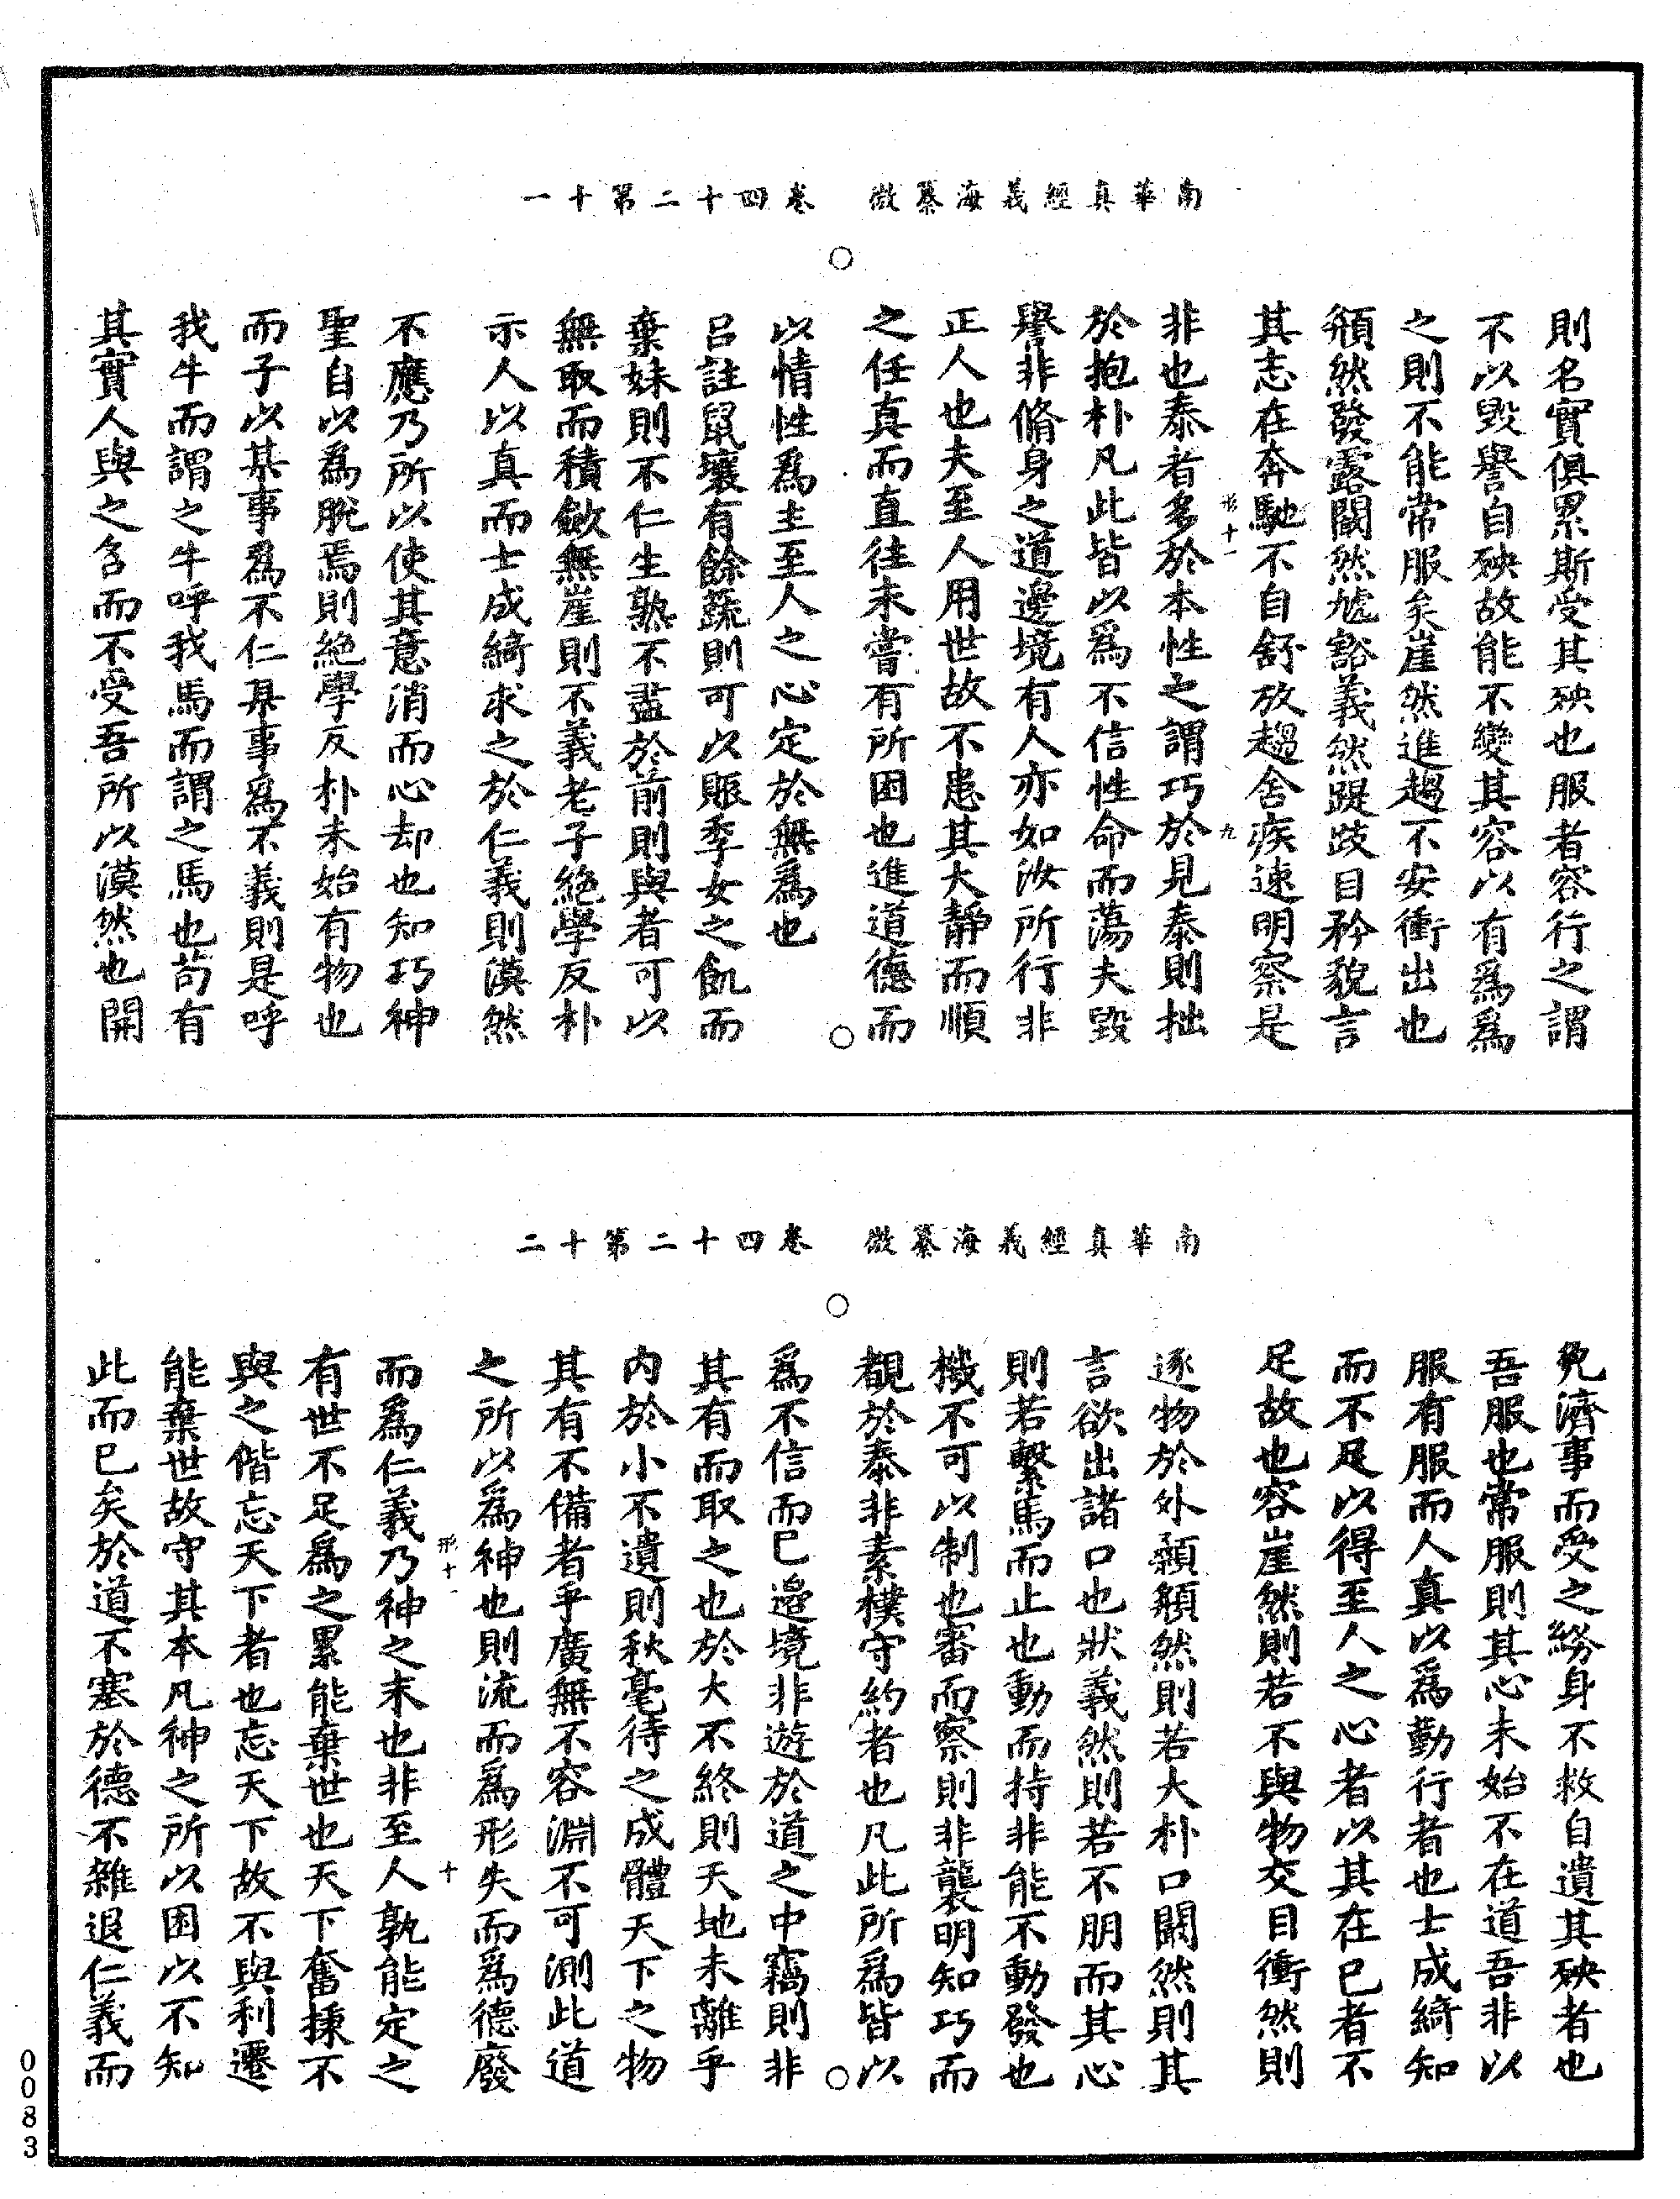 南華真經義海纂微　卷四十二第十一
則名實俱累斯受其殃也服者容行之謂
不以毀譽自殃故能不變其容以有爲爲
之則不能常服矣崖然進趨不安衝出也
頯然發露闞然虓豁義然踶跂自矜貌言
其志在奔馳不自舒放趨舍疾速明察是
非也泰者多於本性之謂巧於見泰則拙
於抱朴凡此皆以爲不信性命而蕩夫毀
譽非脩身之道邊境有人亦如汝所行非
正人也夫至人用世故不患其大靜而順
之任真而直往未嘗有所困也進道德而
以情性爲主至人之心定於無爲也
呂註鼠壤有餘蔬則可以賑季女之飢而
棄妹則不仁生熟不盡於前則與者可以
無取而積斂無崖則不義老子絶學反朴
示人以真而士成綺求之於仁義則漠然
不應乃所以使其意消而心却也知巧神
聖自以爲脫焉則絶學反朴未始有物也
而子以某事爲不仁某事爲不義則是呼
我牛而謂之牛呼我馬而謂之馬也苟有
其實人與之名而不受吾所以漠然也開
形十一
九
南華真經義海纂微　卷四十二第十二
免濟事而受之綈身不救自遺其殃者也
吾服也常服則其心未始不在道吾非以
服有服而人真以爲勤行者也士成綺知
而不足以得至人之心者以其在已者不
足故也容崖然則若不與物交目衝然則
逐物於外顙頯然則若大朴口闞然則其
言欲出諸口也狀義然則若不朋而其心
則若繫馬而止也動而持非能不動發也
機不可以制也審而察則非襲明知巧而
覩於泰非素樸守約者也凡此所爲皆以
爲不信而已邊境非遊於道之中竊則非
其有而取之也於大不終則天地未離乎
内於小不遺則秋毫待之成體天下之物
其有不備者乎廣無不容淵不可測此道
之所以爲神也則流而爲形失而爲德廢
而爲仁義乃神之末也非至人孰能定之
有世不足爲之累能棄世也天下奮揀不
與之偕忘天下者也忘天下故不與利遷
能棄世故守其本凡神之所以困以不知
此而已矣於道不塞於德不雜退仁義而
形十一
十
0083